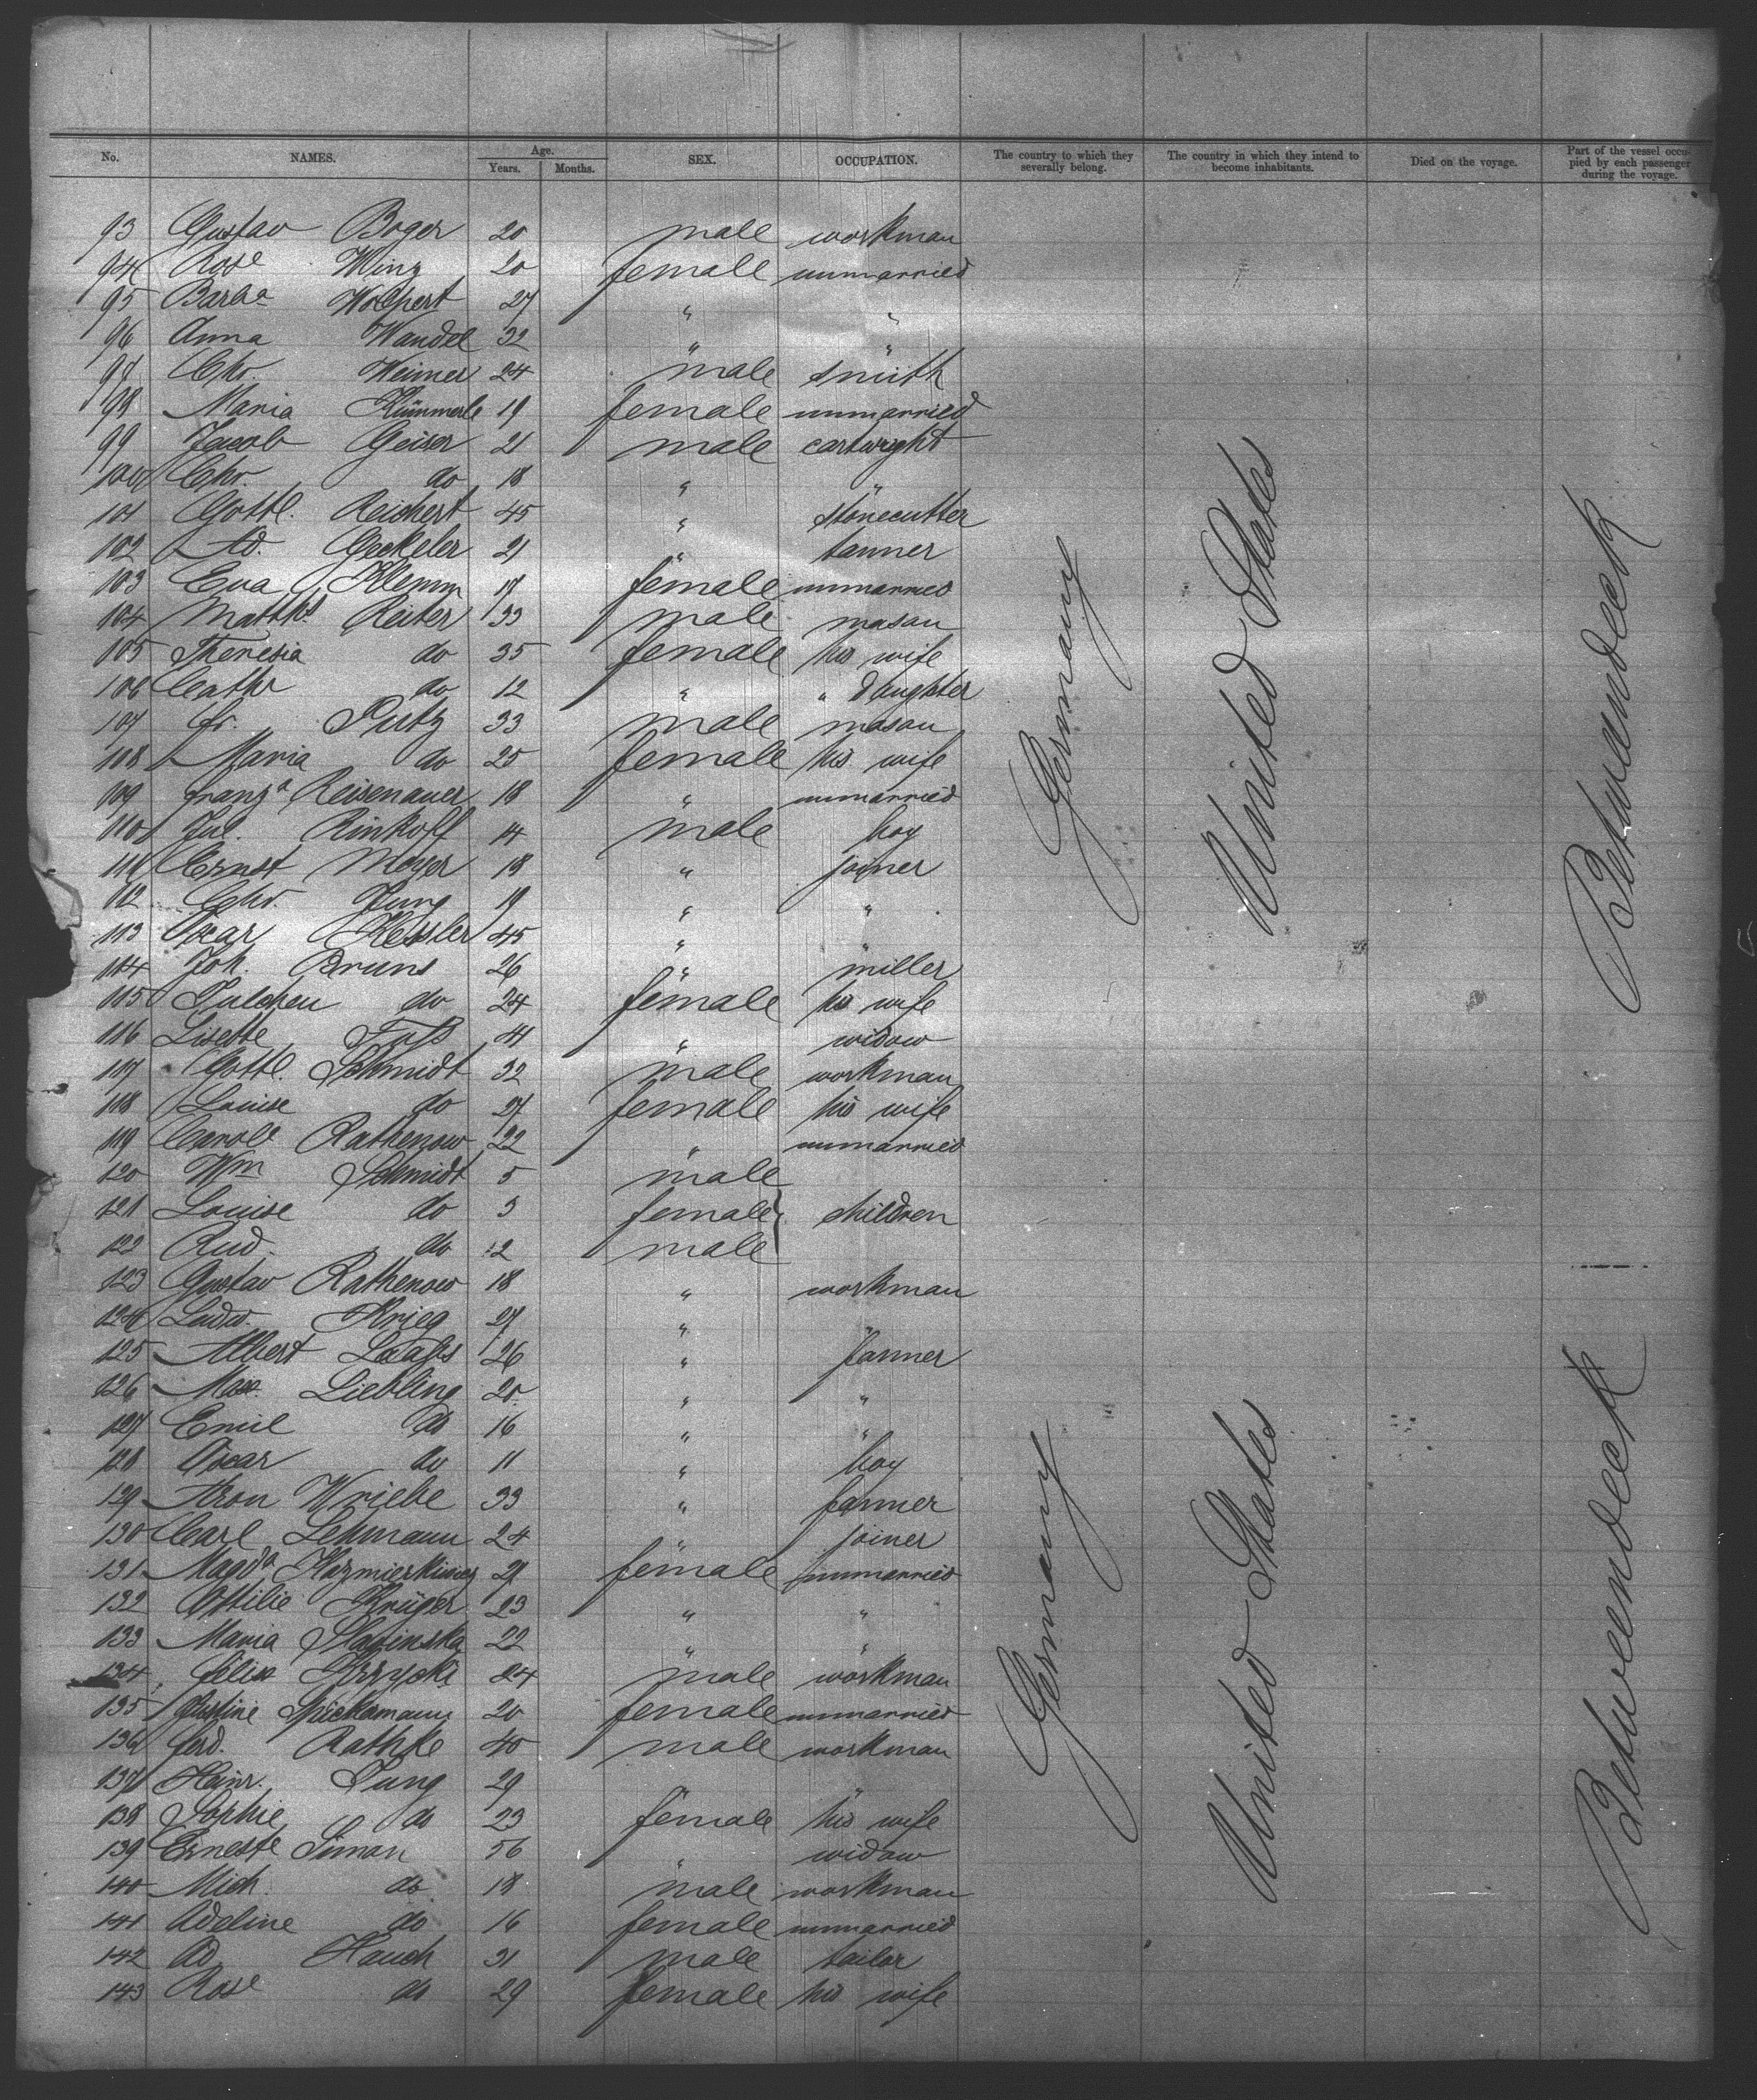 No. NAMES. Age. Years. Months. SEX. OCCUPATION. The country to which they severally belong. The country in which they intend to become inhabitants. Died on the voyage. Part of the vessel occupied by each passenger during the voyage.
93 Gustav Boger 20 male workman
94 Rose Winz 20 female unmarried
95 Barba Wolpert 27 " "
96 Anna Wandel 32 " "
97 Chr. Weimer 24 male smith
98 Maria Kümmerle 19 female unmarried
99 Jacob Geiser 21 male cartwright
100 Chr. do 18 " "
101 Gottl. Reichert 45 " stonecutter
102 Ad. Gackeler 21 " tanner
103 Eva Klemm 17 female unmarried
104 Matths Reiter 33 male mason
105 Theresia do 35 female his wife
106 Cathr do 12 " " daughter
107 Fr. Putz 33 male mason
108 Maria do 25 female his wife
109 Franza Reisenauer 18 " unmarried
110 Jul. Rinkoff 14 male boy
111 Ernst Meyer 18 " joiner
112 Chr. Jung 19 " "
113 Oscar Kessler 45 " "
114 Joh. Bruns 26 " miller
115 Julchen do 24 female his wife
116 Lisette 41 " widow
117 Gottl. Schmidt 32 male workman
118 Louise do 27 female his wife
119 Carole Rathenow 22 " unmarried
120 Wm Schmidt 5 male
121 Louise do 3 female children
122 Rud. do 2 male
123 Gustav Rathenow 18 " workman
124 Ludw. Krieg 27 " "
125 Albert Laaβs 26 " farmer
126 Max Liebling 20 " "
127 Emil do 16 " "
128 Oscar do 11 " boy
129 Aron Wriebe 33 " farmer
130 Carl Lehmann 24 " joiner
131 Magda 21 female unmarried
132 Ottilie Krüger 23 " "
133 Maria Slavinska 22 " "
134 Felix Krzycki 24 male workman
135 Justine Spickermann 20 female unmarried
136 Ferd. Rathke 40 male workman
137 Heinr. Jung 29 " "
138 Sophie do 23 female his wife
139 Erneste Simon 56 " widow
140 Mich. do 18 male workman
141 Adeline do 16 female unmarried
142 Ad. Hauch 31 male tailor
143 Rose do 29 female his wife
Germany
United States
Betweendeck
Germany
United States
Betweendeck